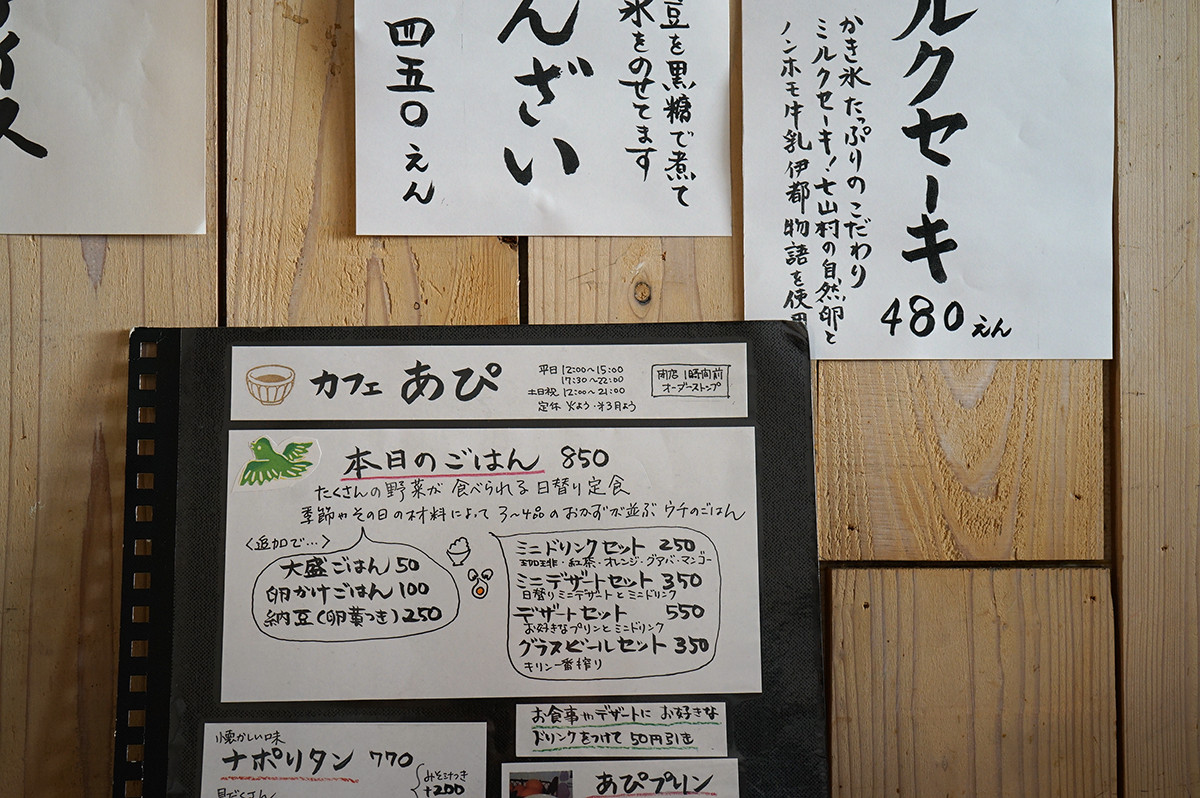 イス
んざい
豆を黒糖で煮て
氷をのせてます
四五〇えん
ルクセーキ
かき氷たっぷりのこだわり
ミルクセーキ!七山村の自然卵と
ノンホモ牛乳伊都物語を使用
480えん
カフェ あぴ
平日 12:00~15:00
17:30~22:00
土日祝 12:00~21:00
定休 火よう・第3月よう
閉店1時間前
オーダーストップ
本日のごはん 850
たくさんの野菜が食べられる日替り定食
季節やその日の材料によって3~4品のおかずが並ぶウチのごはん
<追加で…>
大盛ごはん 50
卵かけごはん 100
納豆(卵黄つき) 250
ミニドリンクセット 250
珈琲・紅茶・オレンジ・グアバ・マンゴー
ミニデザートセット 350
日替りミニデザートとミニドリンク
デザートセット 550
お好きなプリンとミニドリンク
グラスビールセット 350
キリン一番搾り
お食事やデザートに お好きな
ドリンクをつけて 50円引き
懐かしい味
ナポリタン 770
みそ汁つき
+200
具だくさん
あぴプリン